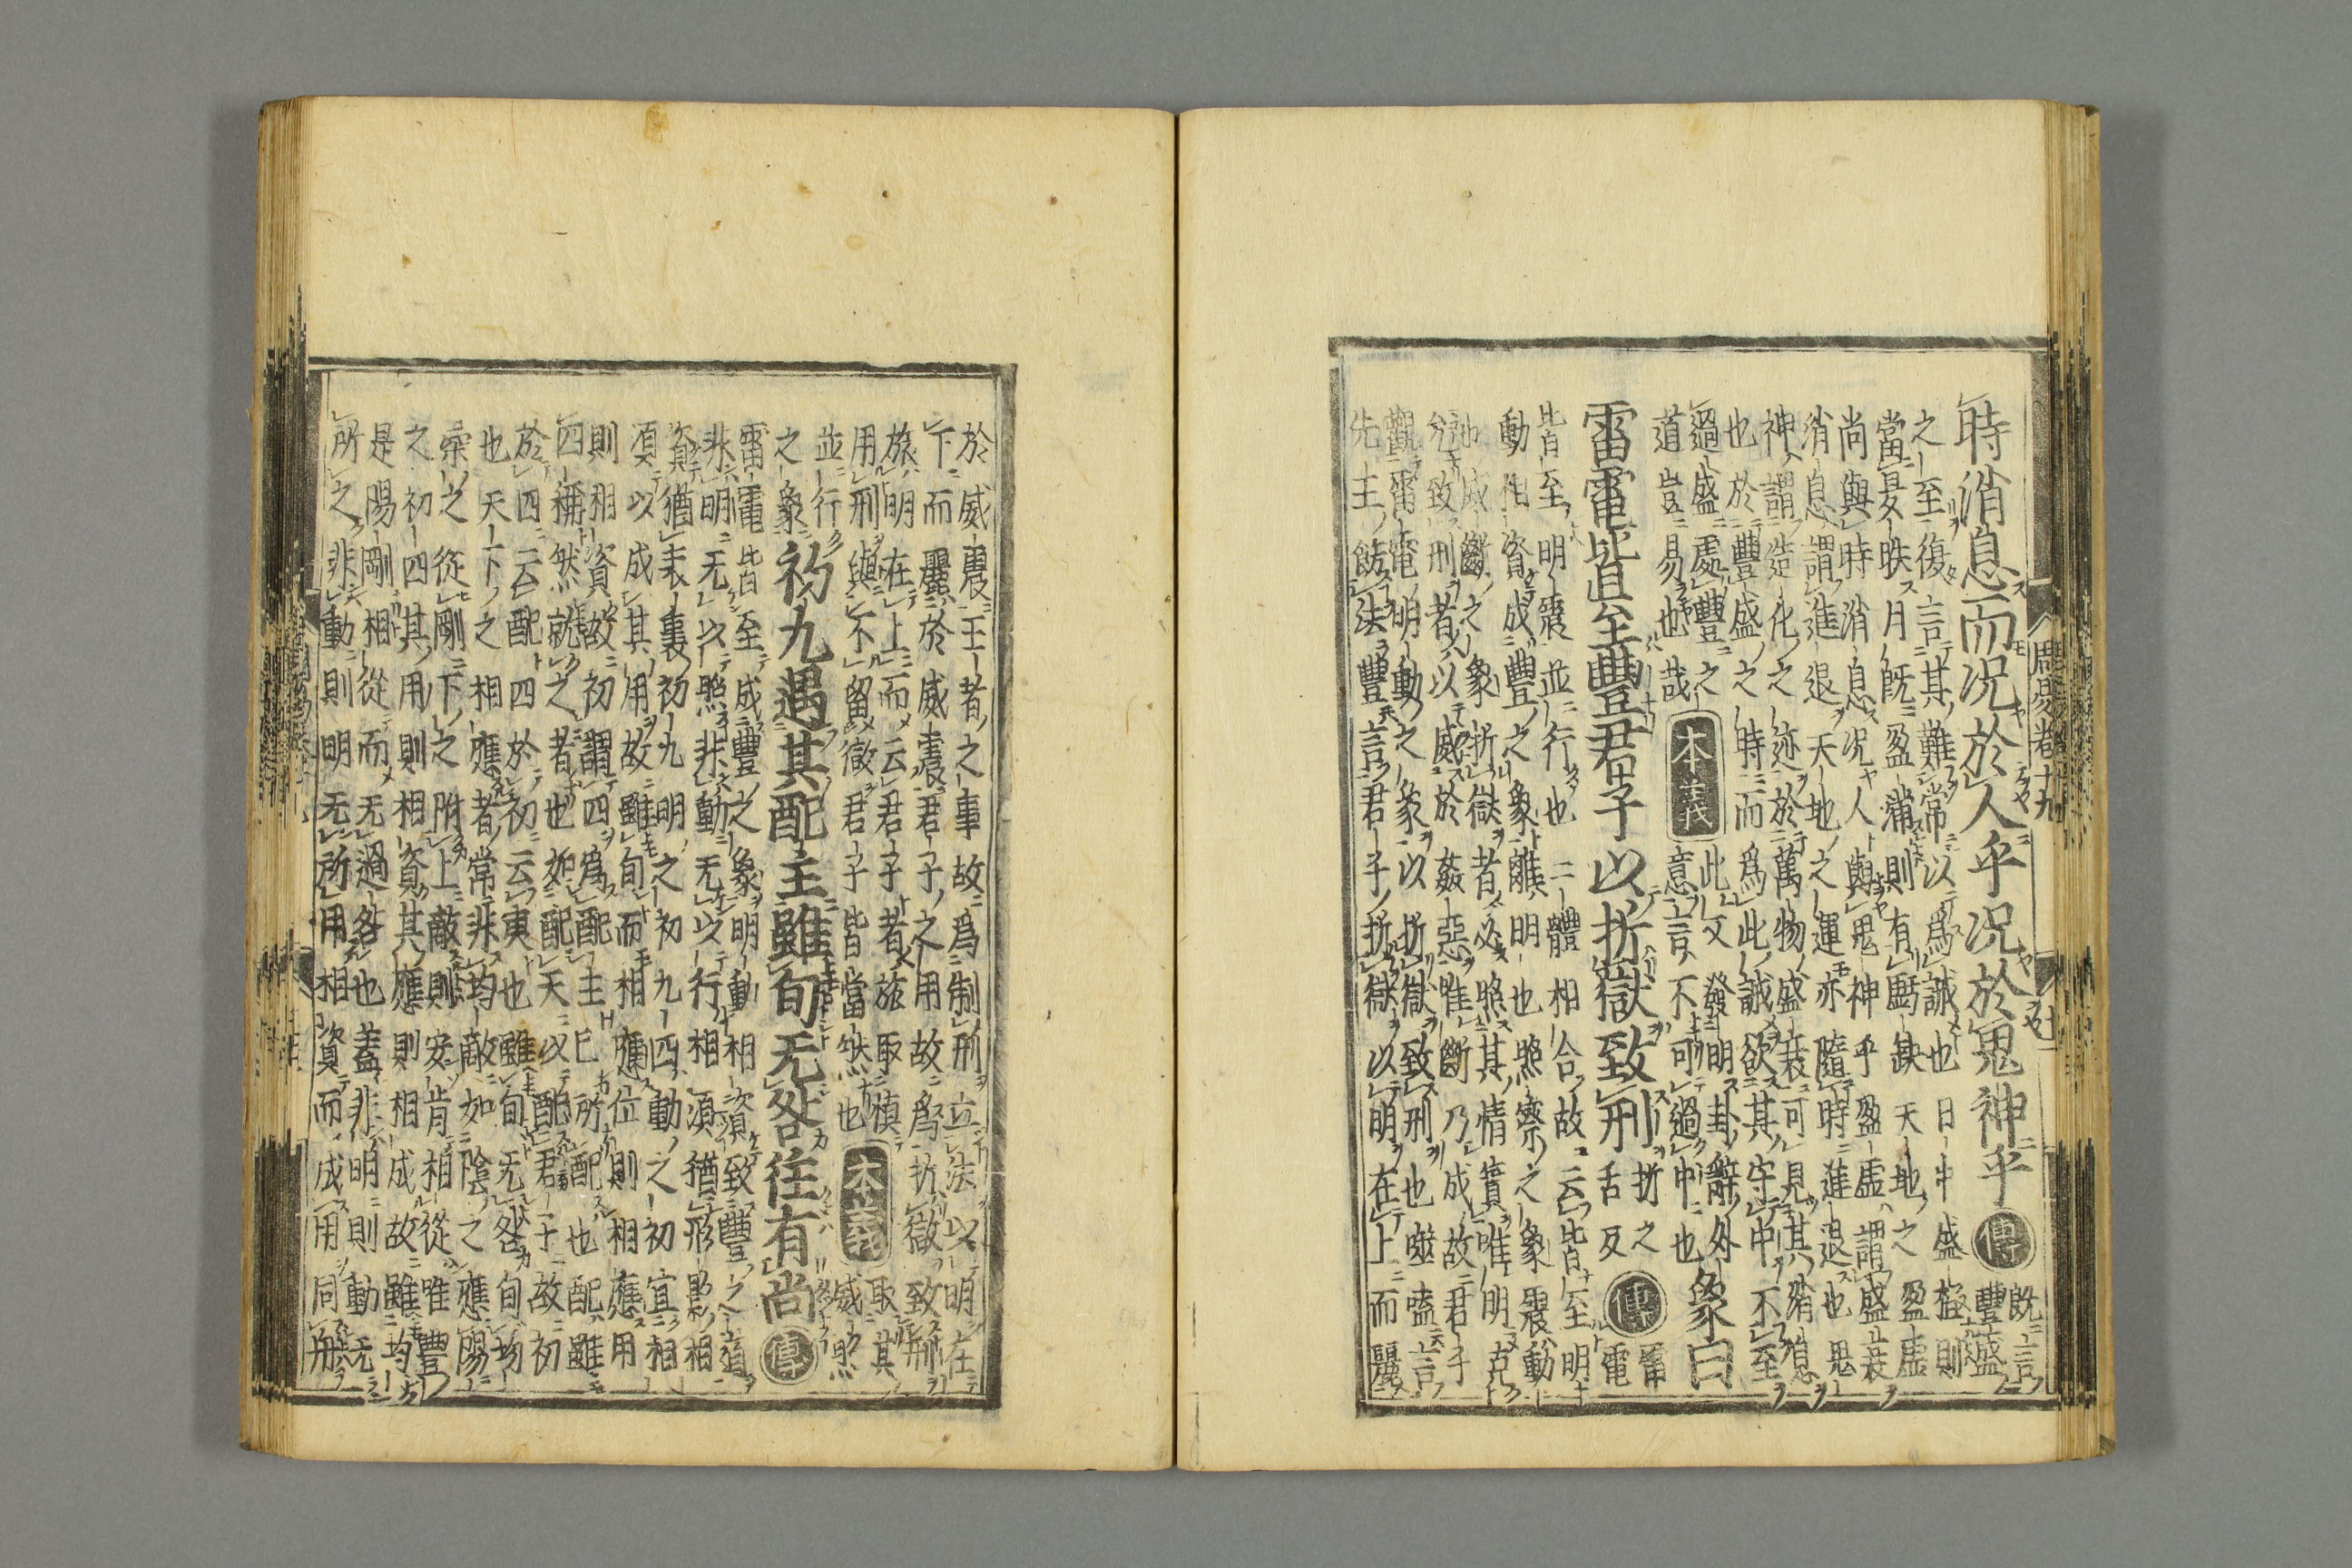 周易卷十九
時消息而況於人乎況於鬼神乎 傳 既言豐盛
之至復言其難常以爲誡也日中盛極則
當昃昳月既盈滿則有虧缺天地之盈虛
尚與時消息況人與鬼神乎盈虛謂盛衰
消息謂進退天地之運亦隨時進退也鬼
神謂造化之迹於萬物盛衰可見其消息
也於豐盛之時而爲此誡欲其守中不至
過盛處豐之道豈易也哉 本義 此文發明卦辭外意言不可過中也 象曰
雷電皆至豐君子以折獄致刑 折之舌反 傳 雷電
皆至明震並行也二體相合故云皆至明
動相資成豐之象離明也照察之象震動
也威斷之象折獄者必照其情實唯明克
允致刑者以威於姦惡唯斷乃成故君子
觀雷電明動之象以折獄致刑也噬嗑言
先王飭法豐言君子折獄以明在上而麗
於威震王者之事故爲制刑立法以明在
下而麗於威震君子之用故爲折獄致刑
旅明在上而云君子者旅取慎
用刑與不留獄君子皆當然也 本義 取其威照
並行之象 初九遇其配主雖旬无咎往有尚 傳
雷電皆至成豐之象明動相資致豐之道
非明无以照非動无以行相須猶形影相
資猶表裏初九明之初九四動之初宜相
須以成其用故雖旬而相應位則相應用
則相資故初謂四爲配主己所配也配雖
匹稱然就之者也如配天以配君子故初
於四云配四於初云夷也雖旬无咎旬均
也天下之相應者常非均敵如陰之應陽
柔之從剛下之附上敵則安肯相從唯豐
之初四其用則相資其應則相成故雖均
是陽剛相從而无過咎也蓋非明則動无
所之非動則明无所用相資而成用同舟